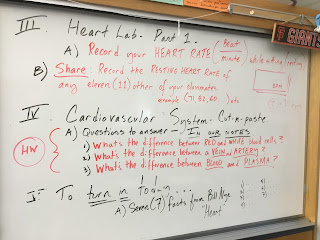 III. Heart Lab - Part 1.
A) Record your HEART RATE (Beat/minute) while sitting/resting
B) Share: Record the RESTING HEART RATE of
any eleven (11) other of your classmates.
example (71, 82, 60...) etc
BPM
IV. Cardiovascular System - Cut-n-paste.
HW
A) Questions to answer - IN OUR NOTES
1) What's the difference between RED and WHITE blood cells?
2) What's the difference between a VEIN and ARTERY?
3) What's the difference between BLOOD and PLASMA?
To turn in today...
A) Seven (7) facts from Bill Nye
Heart
GIANTS